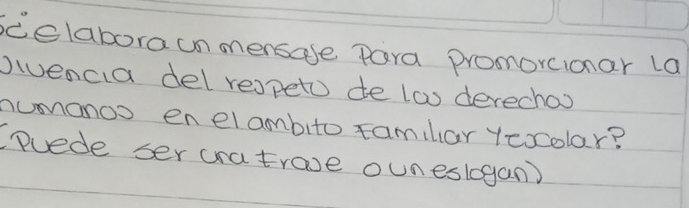 Elabora un mensaje para promorcionar la
vivencia del respeto de los derechos
humanos en el ambito familiar y escolar?
(Puede ser una frase o un eslogan)